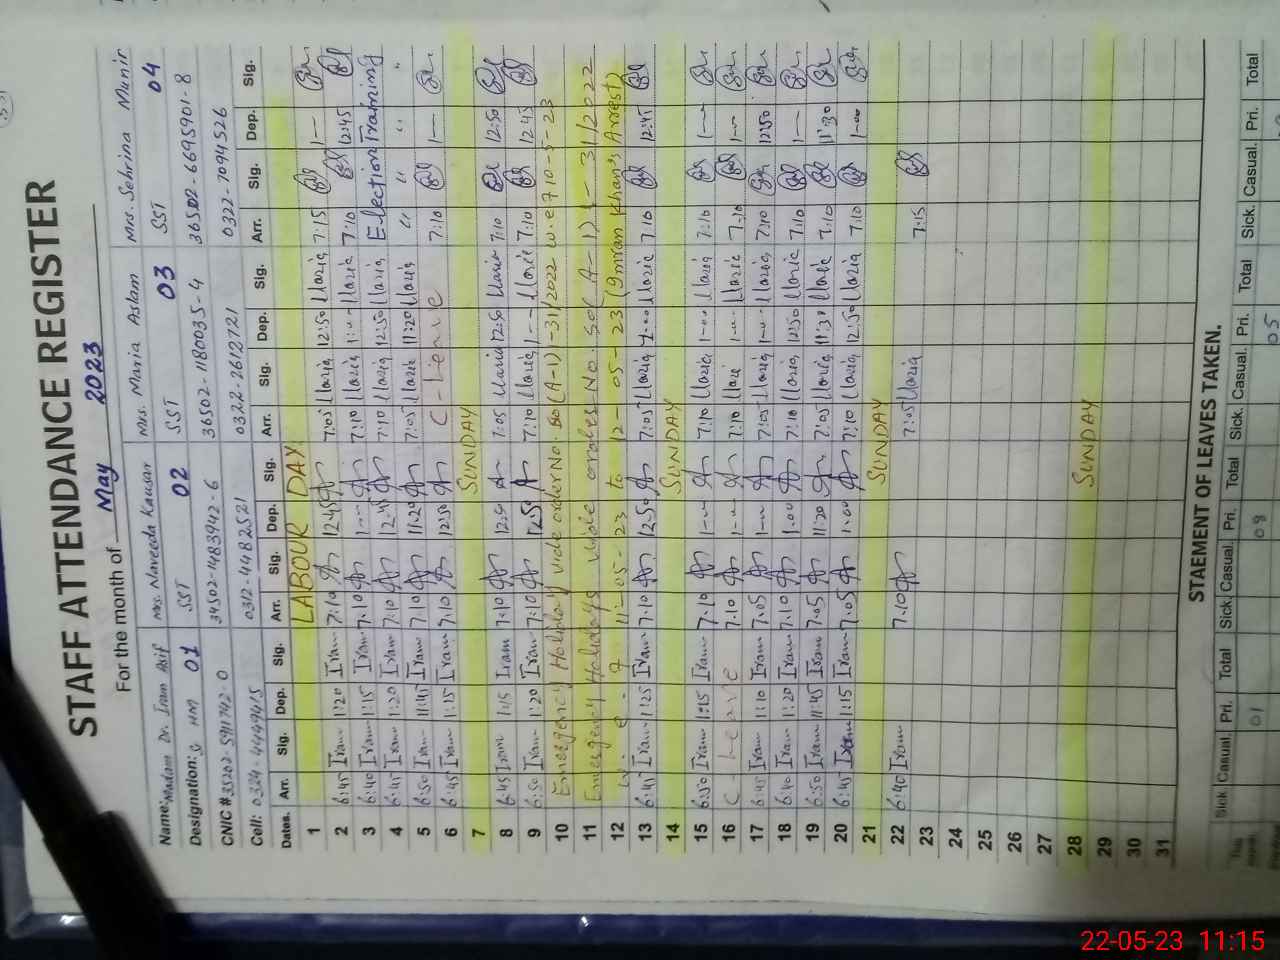 STAFF ATTENDANCE REGISTER
For the month of May 2023
Name: Madam Dr. Iram Asif Mrs. Naveeda Kausar Mrs. Maria Aslam Mrs. Sehrina Munir
Designation: HM 01 SST 02 SST 03 SST 04
CNIC # 35202-5911742-0 34502-1483942-6 36502-1180035-4 36502-6695901-8
Cell: 0324-4449415 0312-4482521 0322-2612721 0322-7094526
Dates. Arr. Sig. Dep. Sig. Arr. Sig. Dep. Sig. Arr. Sig. Dep. Sig. Arr. Sig. Dep. Sig.
1 LABOUR DAY 7:05 Maria 12:50 Maria 7:15 1-
2 6:45 Iram 1:20 Iram 7:10 12:45 7:10 Maria 1:- Maria 7:10 12:45
3 6:40 Iram 1:15 Iram 7:10 1-- 7:10 Maria 12:50 Maria Election Training
4 6:45 Iram 1:20 Iram 7:10 12:45 7:05 Maria 11:20 Maria " " "
5 6:50 Iram 11:45 Iram 7:10 11:20 C-Lieave 7:10 1-
6 6:45 Iram 1:15 Iram 7:10 12:50
7 SUNDAY
8 6:45 Iram 1:15 Iram 7:10 12:50 7:05 Maria 12:50 Maria 7:10 12:50
9 6:50 Iram 1:20 Iram 7:10 12:50 7:10 Maria 1-- Maria 7:10 12:45
10 Emergency Holiday vide order No. SO (A-1) 1-31/2022 w.e.f 10-5-23
11 Emergency Holidays vide orders No. SO (A-1) 1-31/2022
12 w.e.f 11-05-23 to 12-05-23 (Imran Khan's Arrest)
13 6:45 Iram 1:25 Iram 7:10 12:50 7:05 Maria 1:00 Maria 7:10 12:45
14 SUNDAY
15 6:50 Iram 1:15 Iram 7:10 1-- 7:10 Maria 1-00 Maria 7:10 1--
16 C-Leave 7:10 1-- 7:10 Maria 1-- Maria 7:10 1--
17 6:45 Iram 1:10 Iram 7:05 1-- 7:05 Maria 1-- Maria 7:10 12:50
18 6:40 Iram 1:20 Iram 7:10 1:00 7:10 Maria 12:50 Maria 7:10 1-
19 6:50 Iram 11:45 Iram 7:05 11:20 7:05 Maria 11:30 Maria 7:10 11:30
20 6:45 Iram 1:15 Iram 7:05 1:00 7:10 Maria 12:50 Maria 7:10 1-00
21 SUNDAY
22 6:40 Iram 7:10 7:05 Maria 7:15
23
24
25
26
27
28 SUNDAY
29
30
31
STAEMENT OF LEAVES TAKEN.
Sick Casual. Pri. Total Sick. Casual. Pri. Total Sick. Casual. Pri. Total Sick. Casual. Pri. Total
This 01 09 05
22-05-23 11:15